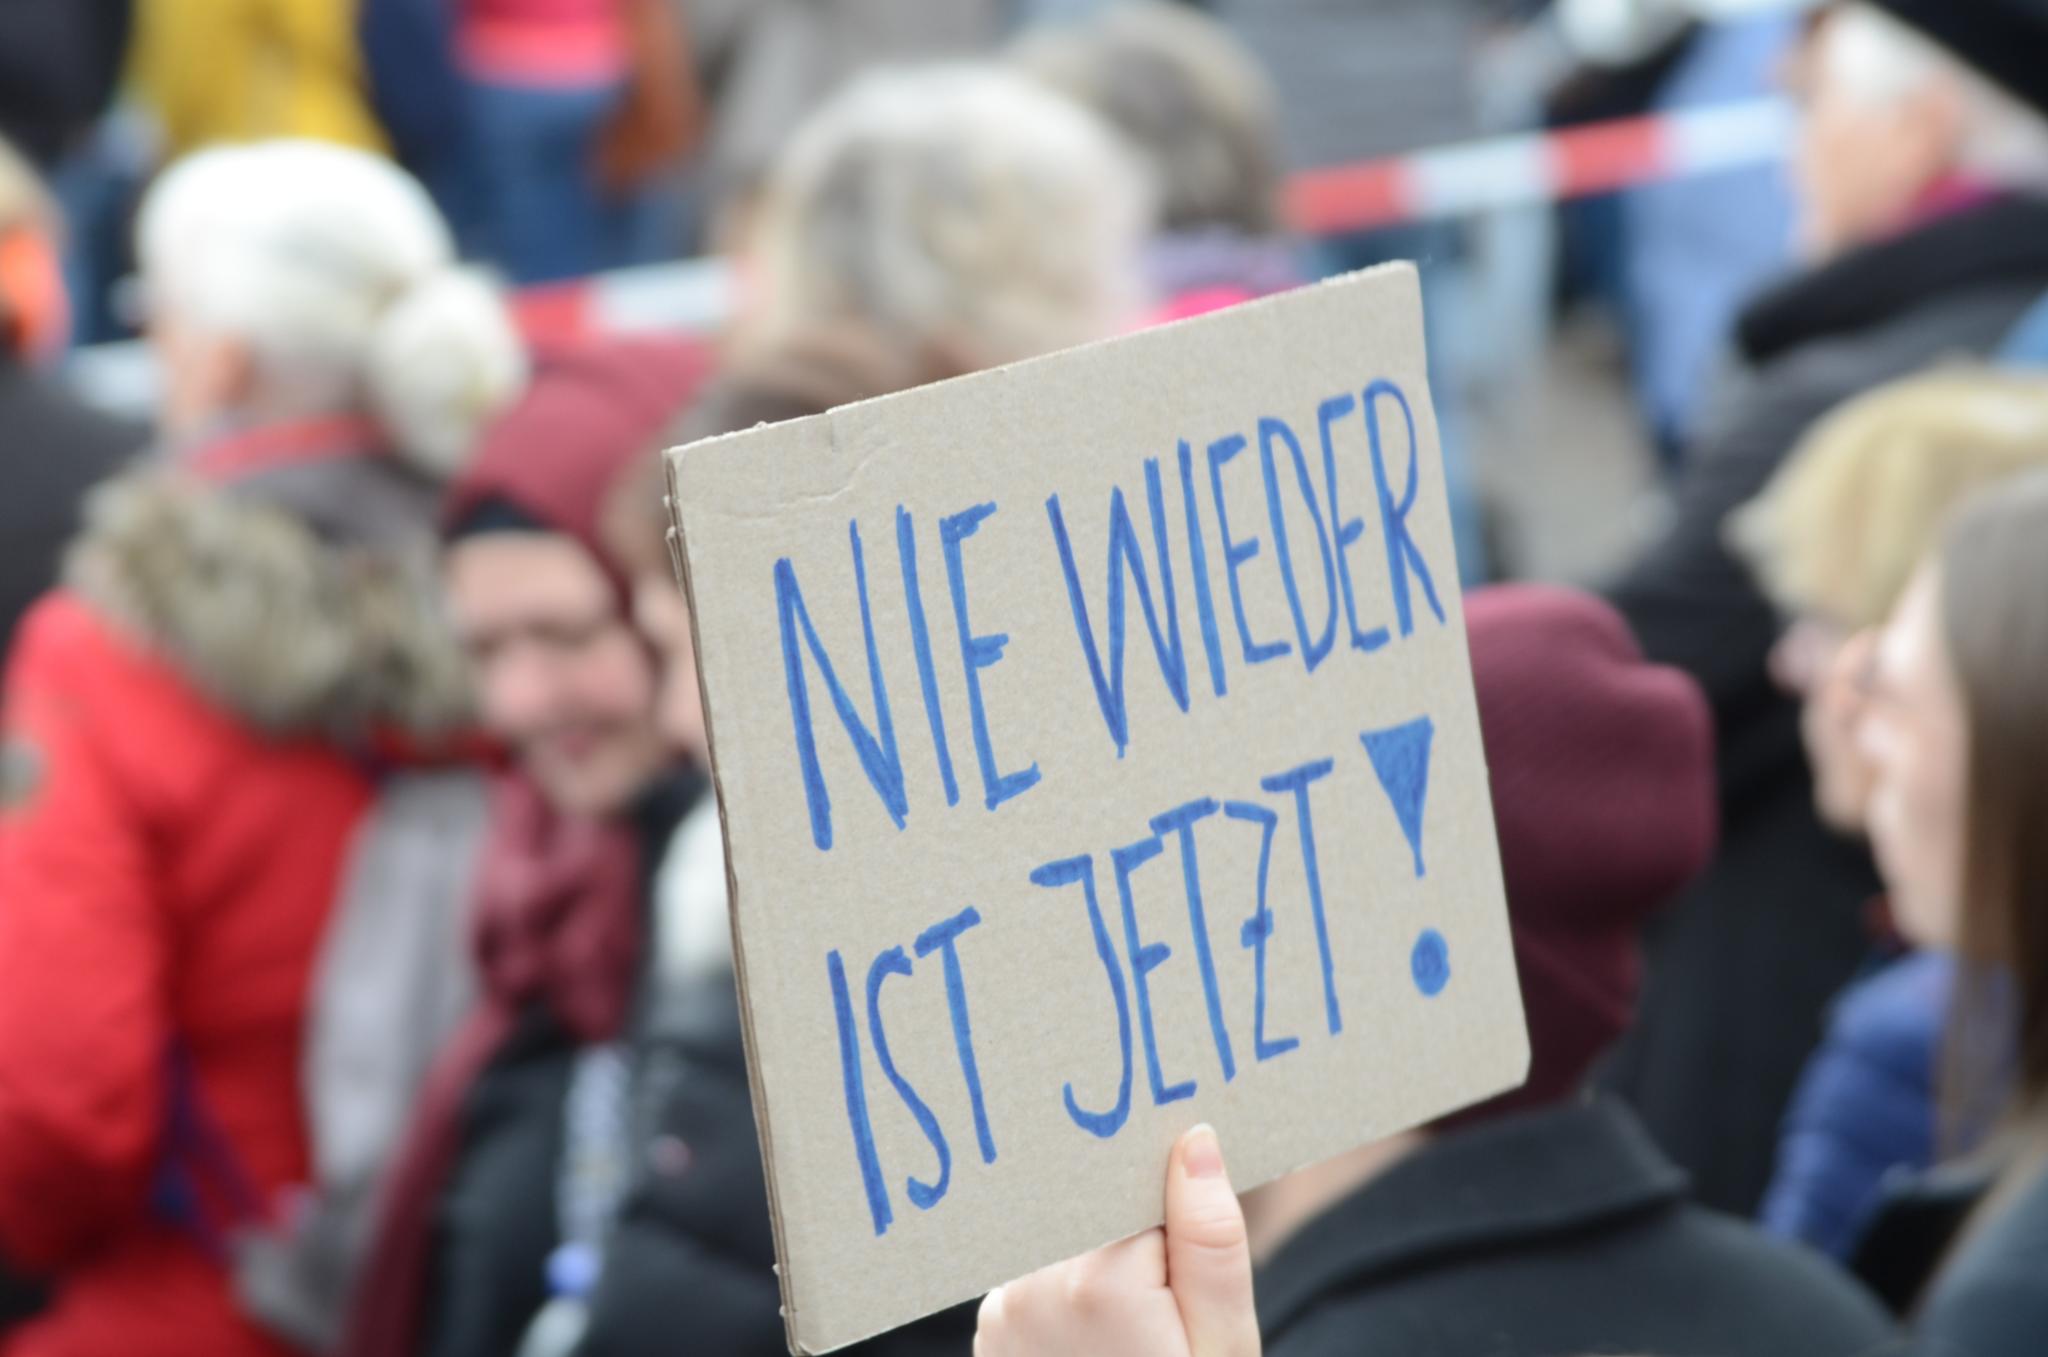 NIE WIEDER
IST JETZT!